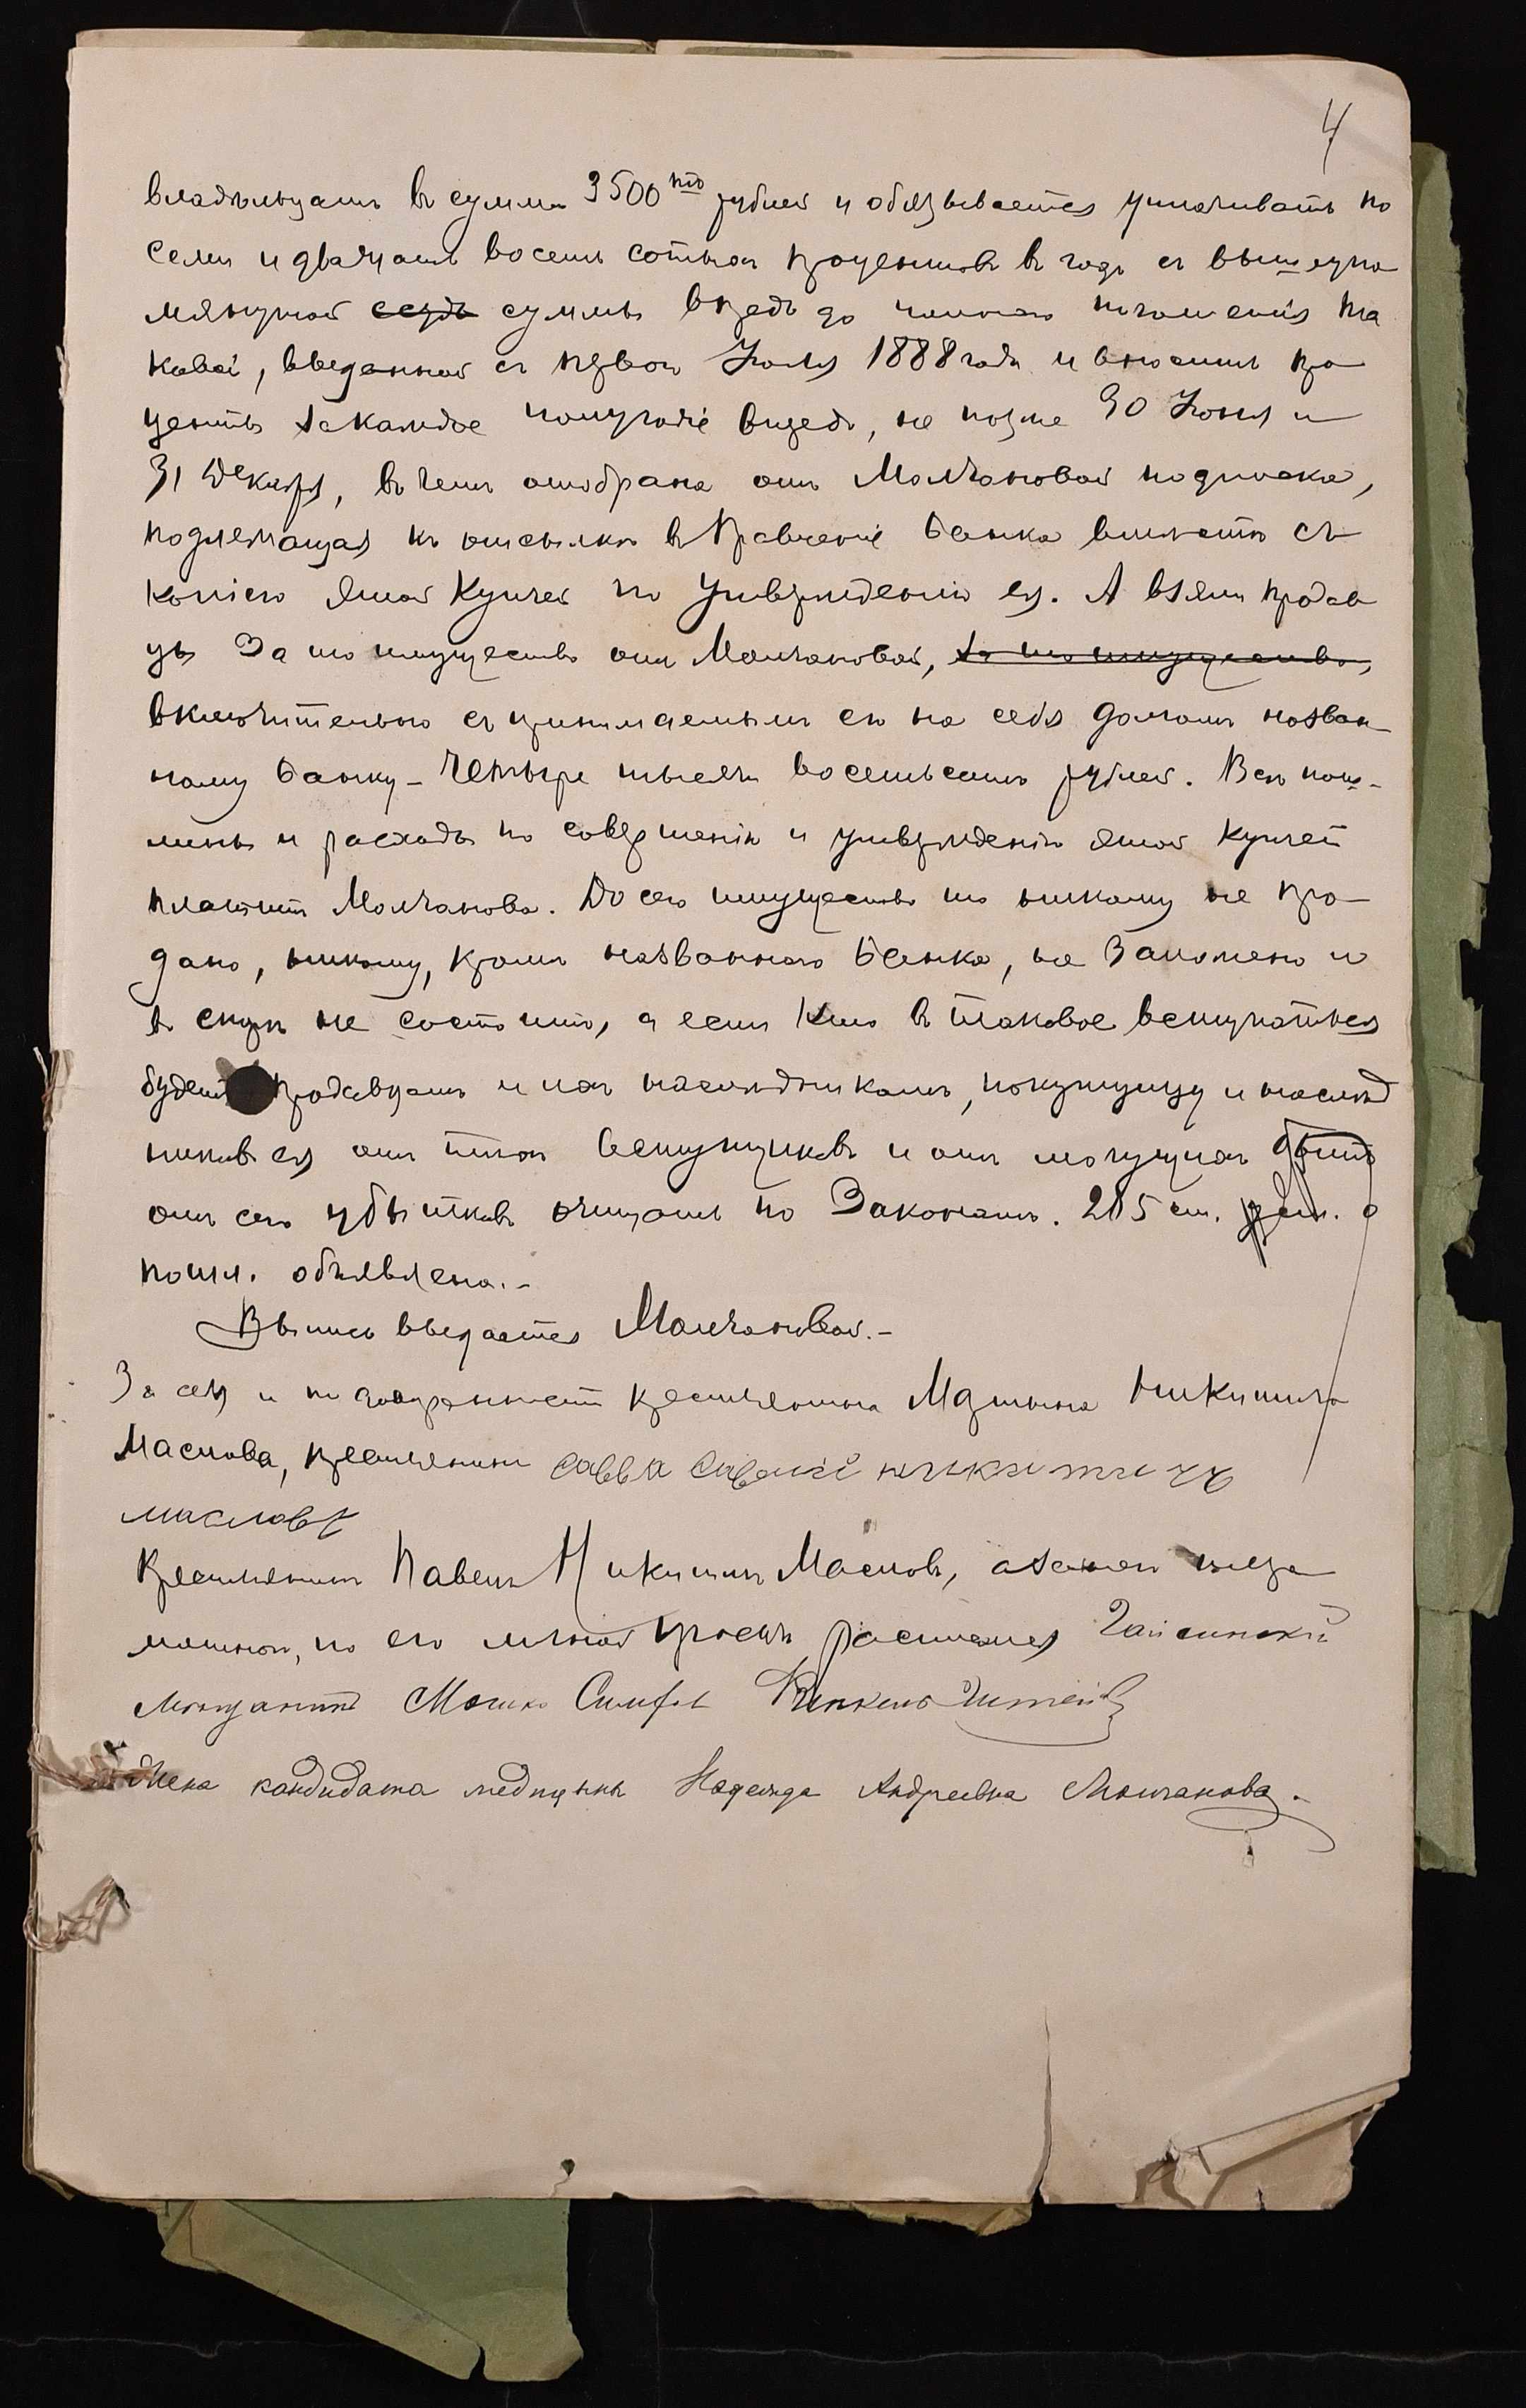 4
владѣльцамъ въ суммѣ 3500 рублей и обязывается уплачивать по
семи и двадцать восемь сотыхъ процентовъ въ годъ съ вышеупо
мянутой ссуды суммы впредь до полнаго погашенія та
ковой, выданной съ перваго Іюля 1888 года и вносить про
центы за каждое полугодіе впредь, не позже 30 Іюня и
31 Декабря, въ чемъ отобрана отъ Молчановой подписка,
подлежащая къ отсылкѣ въ Правленіе Банка вмѣстѣ съ
копіею этой Купчей по утвержденіи ея. А взяли продав
цы за то имущество отъ Молчановой, за то имущество,
включительно съ принимаемымъ ею на себя долгомъ назван
ному Банку – четыре тысячи восемьсотъ рублей. Всѣ пош-
лины и расходы по совершенію и утвержденію этой Купчей
платитъ Молчанова. До сего имущество то никому не про
дано, никому, кромѣ названнаго Банка, не заложено и
въ спорѣ не состоитъ, а если кто въ таковое вступаться
будетъ продавцамъ и ихъ наслѣдникамъ, покупщицу и наслѣд
никовъ ея отъ тѣхъ вступщиковъ и отъ могущихъ быть
отъ сего убытковъ очищать по Законамъ. 215 ст. уст. о
пошл. объявлена.–
Выпись выдается Молчановой.–
За себя и по довѣренности крестьянина Мартына Никитича
Маслова, крестьянинъ Савва Савелій никитичъ
масловъ
Крестьянинъ Павелъ Никитинъ Масловъ, а за него негра
мотнаго, по его личной просьбѣ расписался Гайсинскій
мѣщанинъ Мошко Финкельштейнъ
Жена кандидата медицины Надежда Андреевна Молчанова.